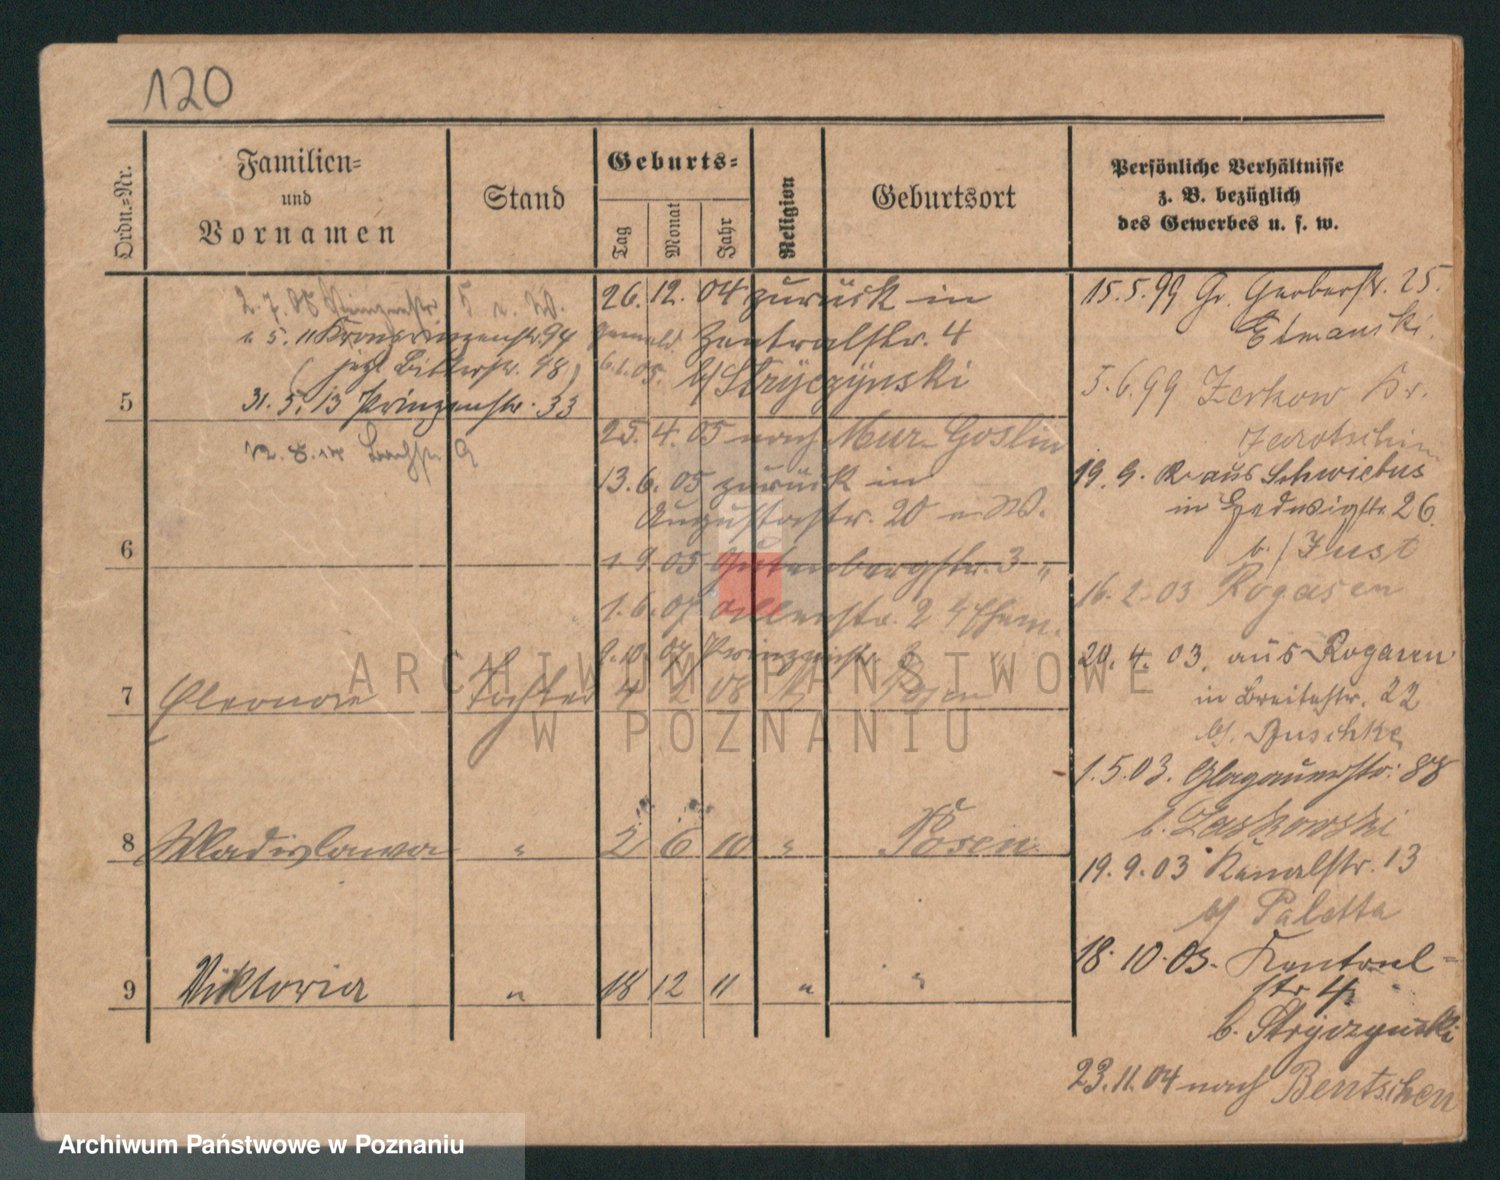 120
Ordn.-Nr.
Familien-
und
Vornamen
Stand
Geburts-
Tag
Monat
Jahr
Religion
Geburtsort
Persönliche Verhältnisse
z. B. bezüglich
des Gewerbes u. s. w.
2. 7. 08
5. 11 Kronprinzenstr. 94
(jetzt Bitterstr. 48)
31. 5. 13 Prinzenstr. 33
5
26. 12. 04 zurück in
Zentralstr. 4
b/ Stryczynski
25. 4. 05 nach Mur. Goslin
13. 6. 05 zurück in
Augustastr. 20
6
1 9 05 Gutenbergstr. 3 "
1. 6. 07
9. 10. 07 Prinzenstr.
7
Eleonore
Tochter
4 2 08
Posen
8
Wladislawa
"
2 6 10
"
Posen
9
Viktoria
"
18 12 11
"
"
15. 5. 99 Gr. Gerberstr. 25.
Etmanski.
5. 6. 99 Zerkow Kr.
Jarotschin
19. 9. R. aus Schwiebus
in Hedwigstr. 26.
b. / Just
16. 2. 03 Rogasen
20. 4. 03. aus Rogasen
in Breitestr. 22
b/. Duschke
1. 5. 03. Glogauerstr. 88
b. Laskowski
19. 9. 03 Kanalstr. 13
b/ Paletta
18. 10. 03. Zentral-
str. 4
b. Stryczynski
23. 11. 04 nach Bentschen
ARCHIWUM PAŃSTWOWE
W POZNANIU
Archiwum Państwowe w Poznaniu